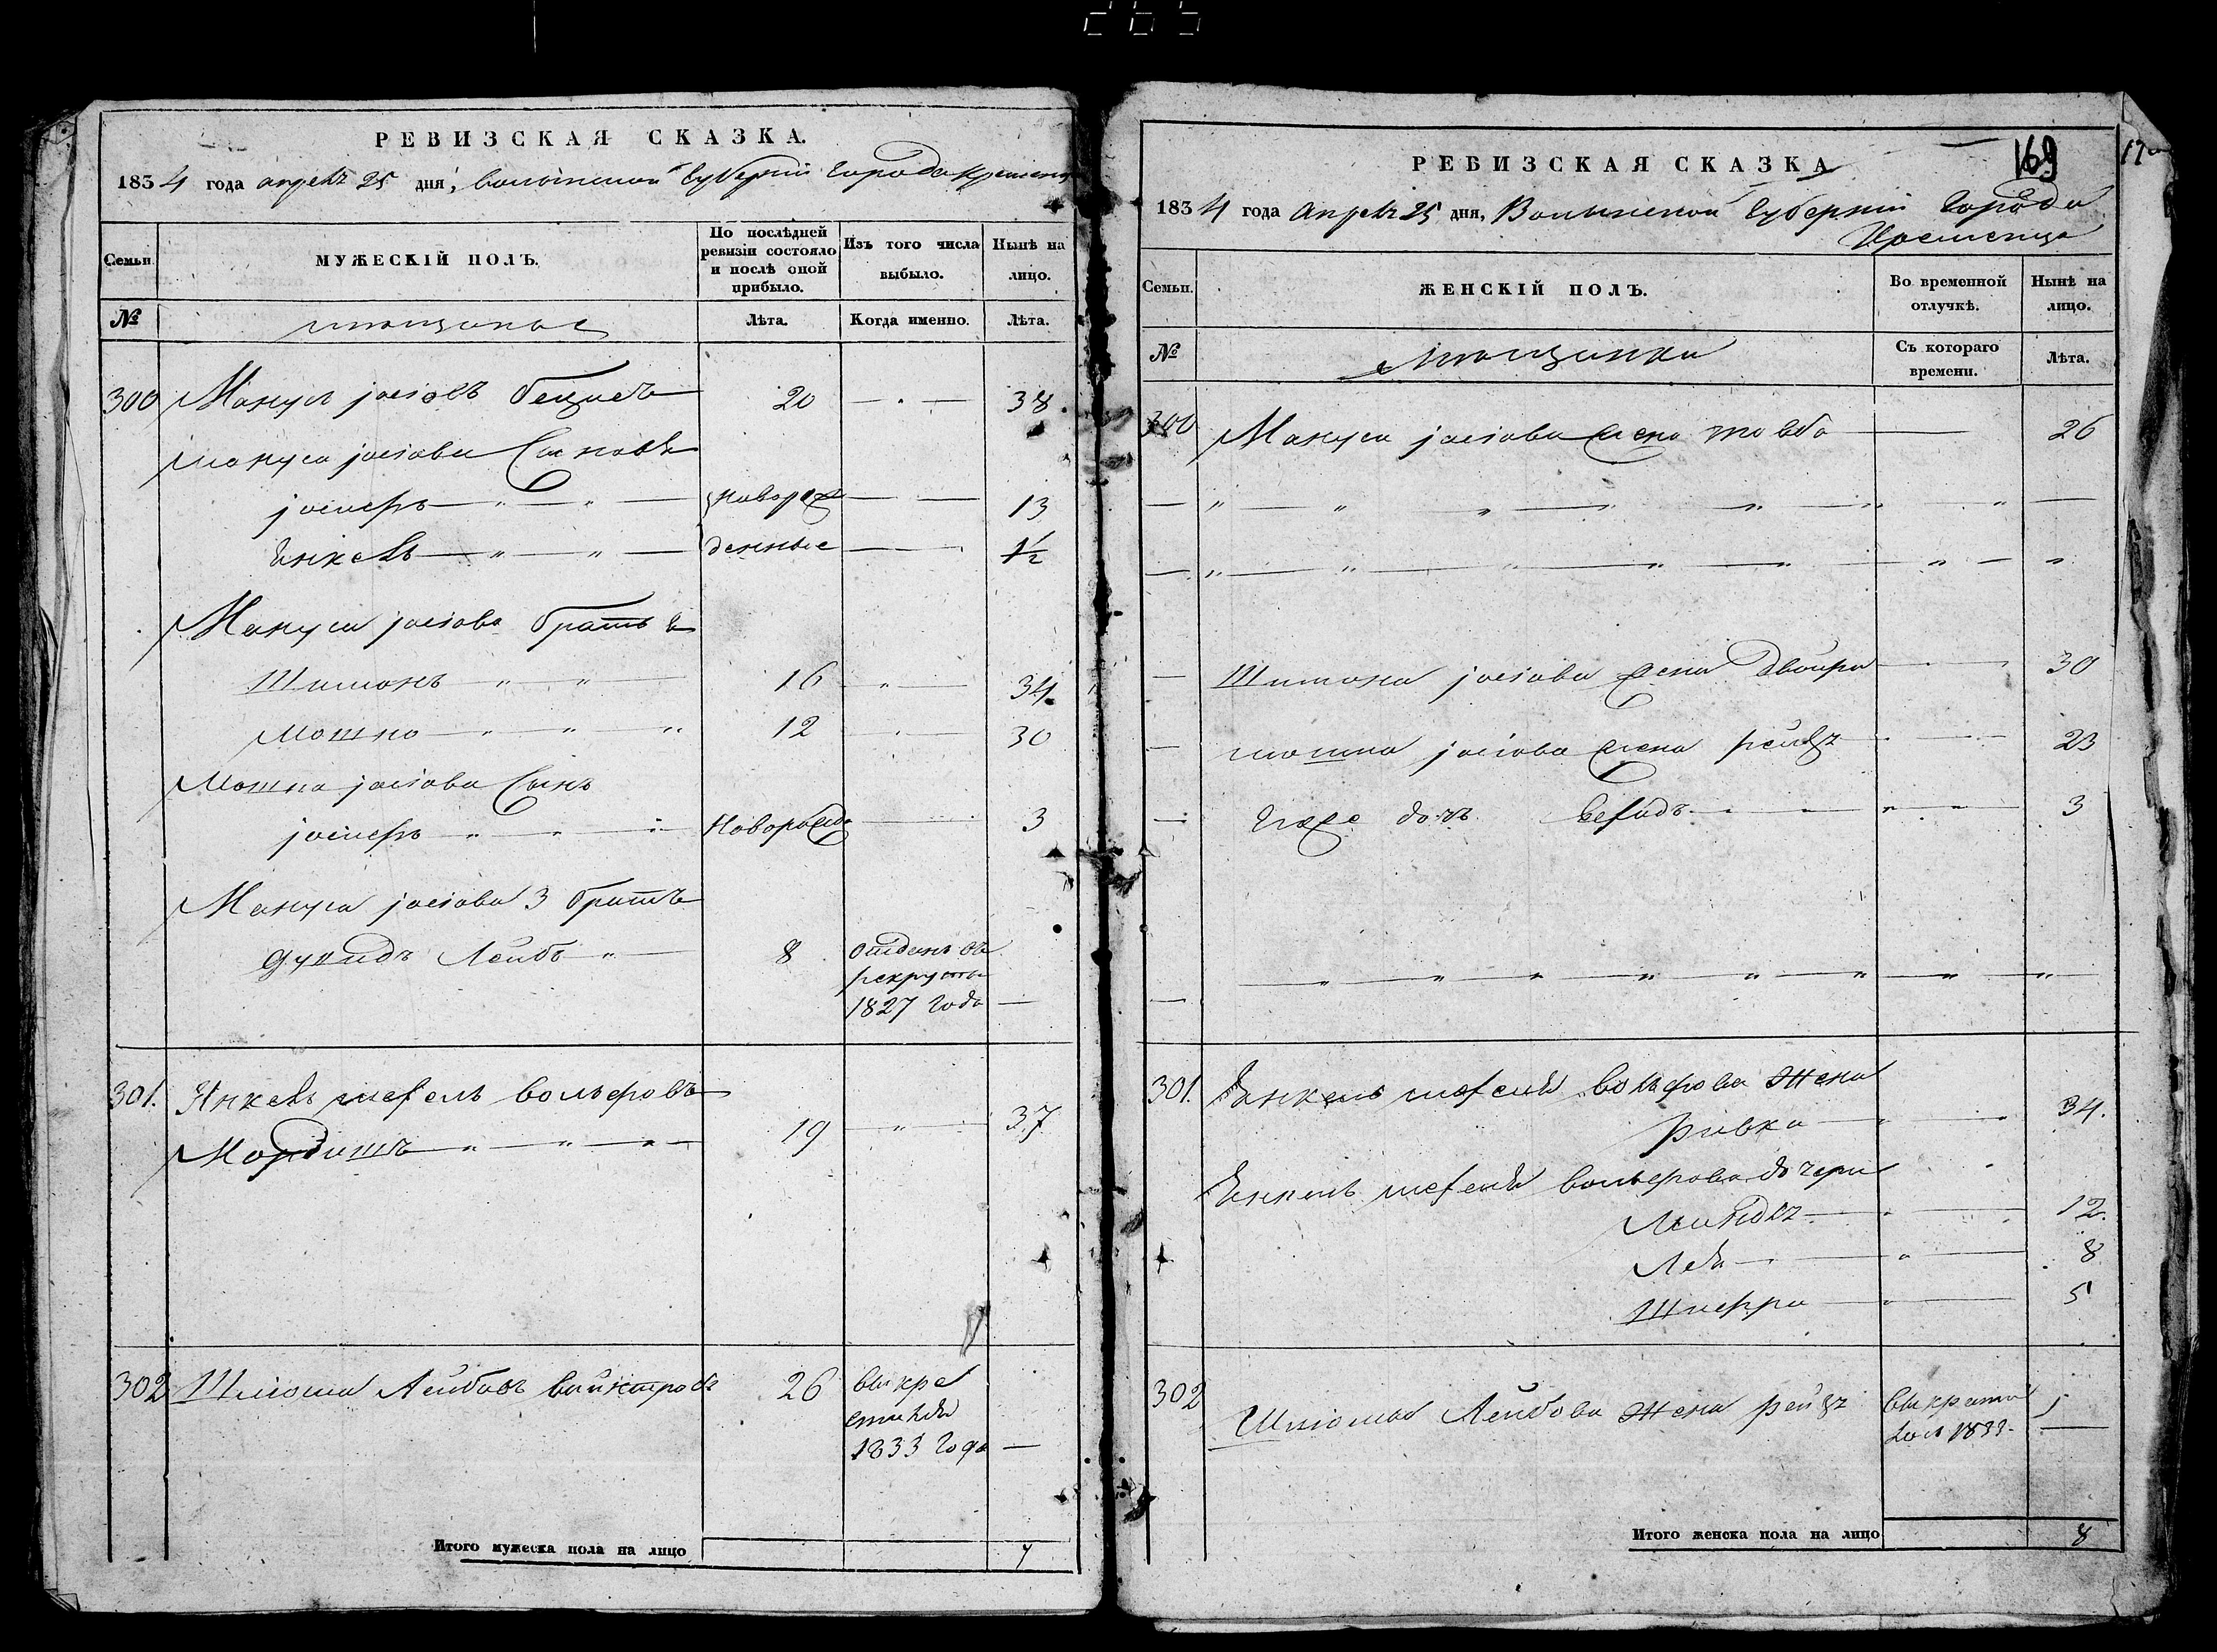 265
РЕВИЗСКАЯ СКАЗКА.
1834 года апреля 25 дня, волынской Губернии города Кременца
Семьи.
МУЖЕСКІЙ ПОЛЪ.
По послѣдней ревизіи состояло и послѣ оной прибыло.
Изъ того числа выбыло.
Нынѣ на лицо.
№
мещане
Лѣта.
Когда именно.
Лѣта.
300 Мануси јосіовъ 20 — 38.
Мануса јосіова Сыновя
јосиферъ новорож 13
Енкель денные 1½
Мануси јосіова братья
Шимонъ 16 34.
Мошко 12 30
Мошка јосіова Сынъ
јосиферъ новорожд 3
Мануси јосіова 3 братъ
Лейбъ 8 отданъ въ
рекруты
1827 года —
301. Янкель вольфовъ
19 37
302 Шлиома Лейбовъ 26 выкре
стился
1833 года —
Итого мужеска пола на лицо 7
РЕВИЗСКАЯ СКАЗКА
169
1834 года Апреля 25 дня, Волынской Губернии Города
Кременца
Семьи.
ЖЕНСКІЙ ПОЛЪ.
Во временной отлучкѣ.
Нынѣ на лицо.
№
мещанки
Съ котораго времени.
Лѣта.
300 Мануса јосіова жена товба 26
Шимона јосіова жена двойра 30
мошка јосіова жена рейзя 23
Егоже дочъ 3
301. Янкель вольфова Жена
ривка 34.
Енкель вольфова дочери
Миндля 12.
Леа 8
Шифра 5
302 Шлиома Лейбова Жена рейзя
1833. —
Итого женска пола на лицо 8